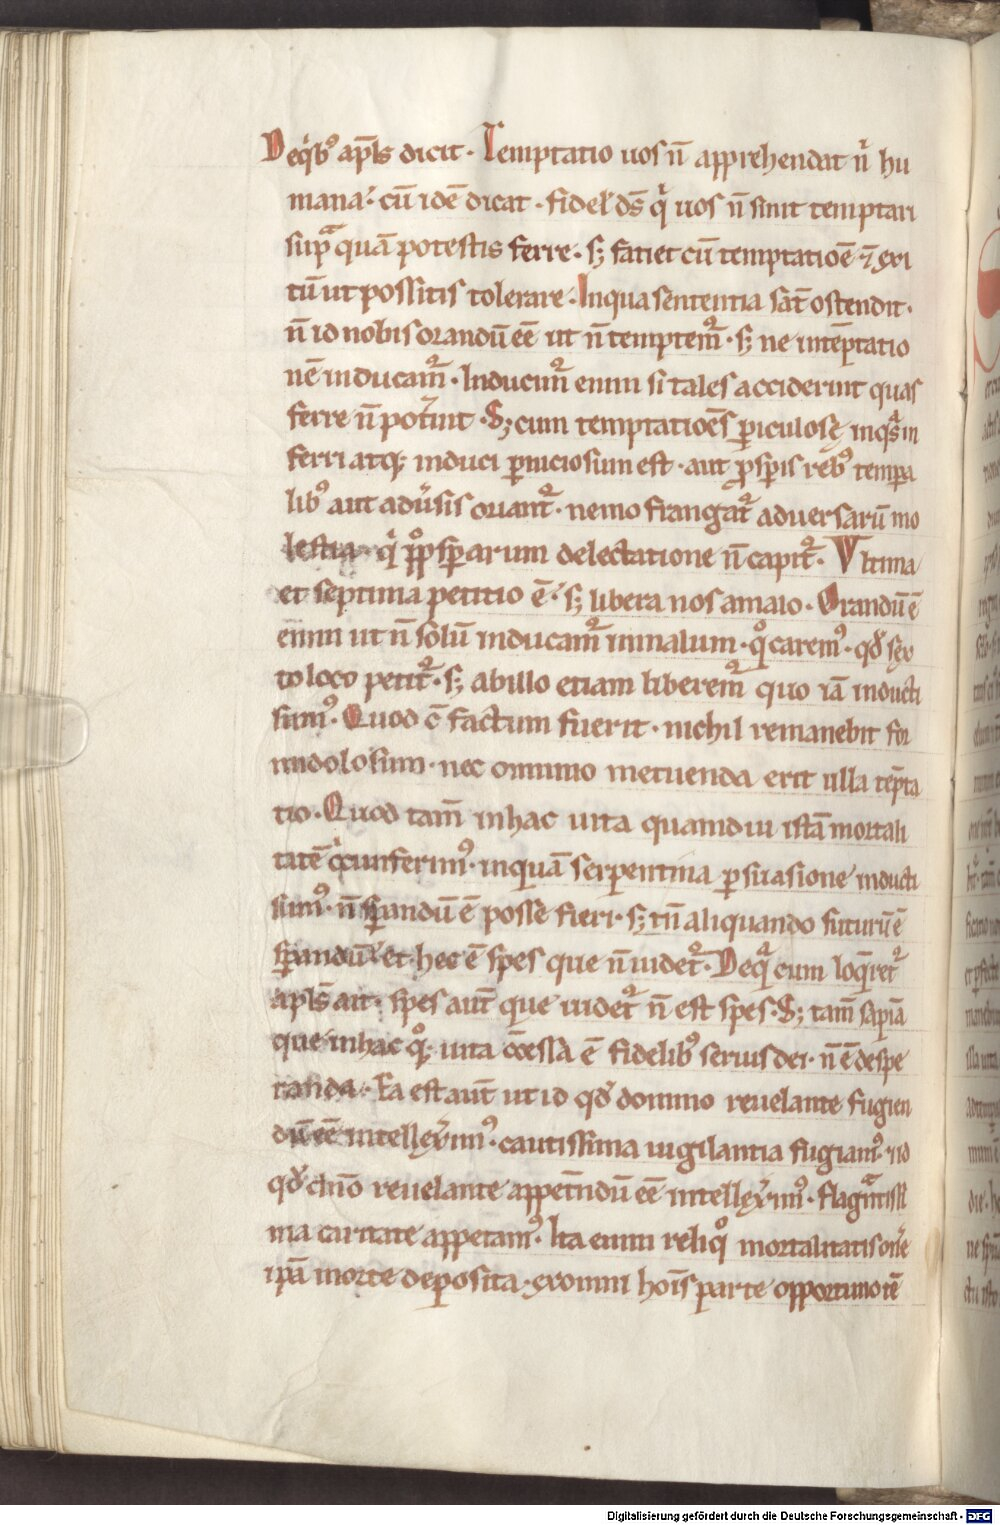 Deqͥbꝰ apl̅s dicit · Temptatio uos n̅ apprehendat nͥ hu
mana · cu̅ ide̅ dicat · fidel̕ ds̅ qͥ uos n̅ sinit temptari
supᷓ qua̅ potestis ferre · sꝫ faciet cu̅ temptatioe̅ ⁊ exi
tu̅ ut possitis tolerare · In qua sententia sat̅ ostendit ·
n̅ id nobis orandu̅ ee̅ ut n̅ temptem̅ᷣ · sꝫ ne inte̅ptatio
ne̅ inducam̅ᷣ · Inducim̅ᷣ enim si tales acciderint quas
ferre n̅ pot̕int · Sꝫ cum temptatioe̅s ꝑiculosę inqͣs in
ferri atqꝫ induci ꝑniciosum est · aut ꝓsꝑis rebꝰ tempa
libꝰ aut adu̕sis oriant᷑ · nemo frangat᷑ aduersaru̅ mo
lestia · qͥ ꝓsꝑarum delectatione n̅ capit᷑ · Vltima
et septima petitio e̅ · sꝫ libera nos a malo · Orandu̅ e̅
enim ut n̅ solu̅ inducam᷑ in malum · qͦ caremꝰ · qd̕ sex
to loco petit᷑ · sꝫ ab illo etiam liberem᷑ quo ia̅ inducti
sumꝰ · Quod c̅ factum fuerit · nichil remanebit for
midolosum · nec omnino metuenda erit ulla te̅pta
tio · Quod tam̅ in hac uita quamdiu ista̅ mortali
tate̅ cͥcunferimꝰ · in qua̅ serpentina ꝑsuasione inducti
sumꝰ · n̅ sꝑandu̅ e̅ posse fieri · sꝫ tn̅ aliquando futuru̅ e̅
sꝑandu̅ · et hec e̅ spes que n̅ uidet᷑ · De qͣ cum loq̅ret᷑
apl̅s ait · spes aut̅ que uidet᷑ n̅ est spes · Sꝫ tam̅ sapia̅
que in hac qͦqꝫ uita co̅cessa e̅ fidelibꝰ seruis dei · n̅ e̅ despe
randa · Ea est aut̅ ut id qd̕ domino reuelante fugien
du̅ ee̅ intellex̕imꝰ · cautissima uigilantia fugiamꝰ · ⁊ id
qd̕ dn̅o reuelante appete̅du̅ ee̅ intellex̕imꝰ · flagͣntissi
ma caritate appetamꝰ · Ita enim reliqͦ mortalitatis on̕e
ipa̅ morte deposita · ex omni ho̅is parte opportuno te̅
Digitalisierung gefördert durch die Deutsche Forschungsgemeinschaft - DFG